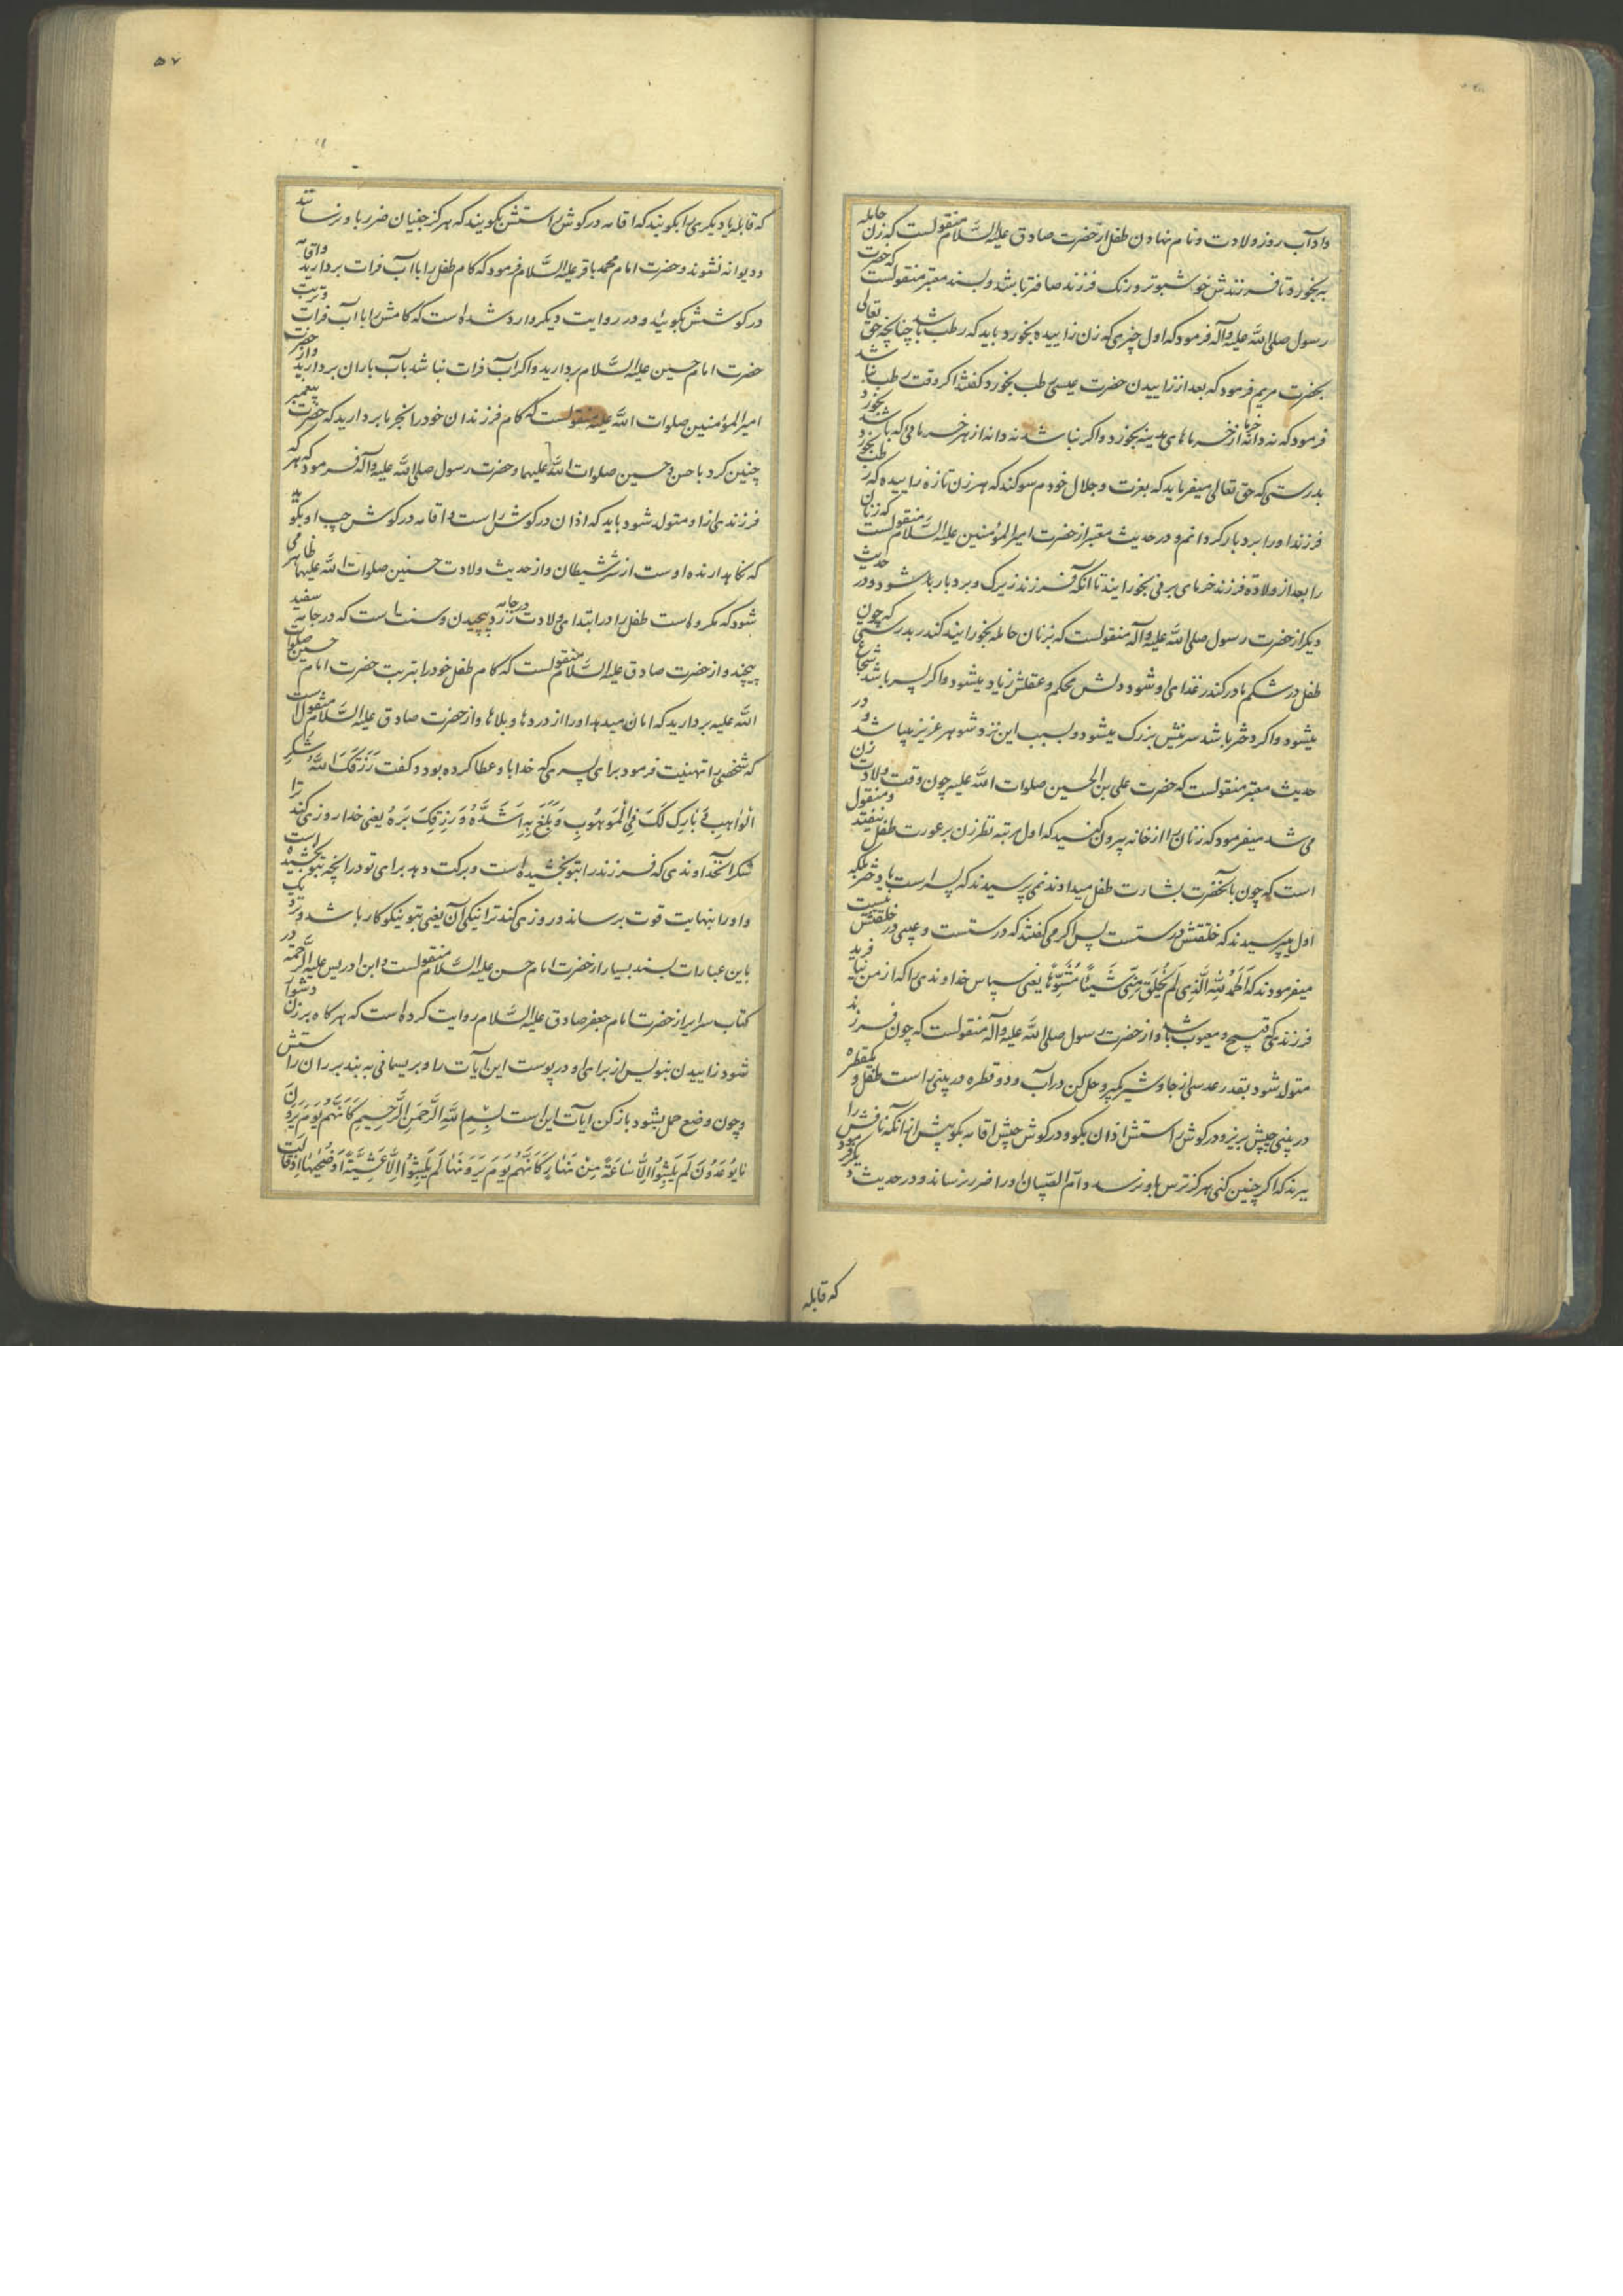 وآداب روز ولادت و نام نهادن طفل از حضرت صادق علیه السَّلام منقولست که زن حامله
به بخورد تا فرزندش خوشبوتر و رنک فرزند صافتر باشد و بسند معتبر منقولست که حضرت
رسول صلی الله علیه وآله فرمود که اول چیزی که زن زاییده بخورد باید که رطب باشد چنانچه حق تعالی
بحضرت مریم فرمود که بعد از زاییدن حضرت عیسی رطب بخورد کفتند اکر وقت رطب نباشد
فرمود که نه دانه خرما از خرماهای مدینه بخورد و اکر نباشد نه دانه از هر خرمائی که باشد بخورد
بدرستی که حق تعالی میفرماید که بعزت و جلال خودم سوکند که هر زن تازه زاییده که رطب بخورد
فرزند او را بردبار کردانم و در حدیث معتبر از حضرت امیرالمؤمنین علیه السَّلام منقولست که زنان
را بعد از ولادة فرزند خرمای برنی بخورانید تا آنکه فرزند زیرک و بردبار باشود و در حدیث
دیکر از حضرت رسول صلی الله علیه وآله منقولست که بزنان حامله بخورانید کندر بدرستی که چون
طفل در شکم مادر کندر غذای او شود دلش محکم و عقلش زیاد میشود و اکر پسر باشد شجاع
میشود و اکر دختر باشد سرینش بزرک میشود و بسبب این نزد شوهر عزیز میباشد و در
حدیث معتبر منقولست که حضرت علی بن الحسین صلوات الله علیه چون وقت ولادت زن
می شد میفرمود که زنان را از خانه بیرون کنید که اول مرتبه نظر زن بر عورت طفل نیفتد و منقول
است که چون بآنحضرت بشارت طفل میدادند نمی پرسیدند که پسر است یا دختر بلکه
اول میپرسیدند که خلقتش درستست پس اکر می کفتند که درستست و عیبی در خلقتش نیست
میفرمودند که اَلحَمدُ لِلّٰهِ الَّذِی لَم یَخلُق مِنّی شَیئاً مُشَوَّهاً یعنی سپاس خداوندی را که از من نیافرید
فرزندی که قبیح و معیوب باشد و از حضرت رسول صلی الله علیه وآله منقولست که چون فرزند
متولد شود بقدر عدسی از جاوشیر بکیر و حل کن در آب و دو قطره در بینی راست طفل و یکقطره
در بینی چپش بریز و در کوش راستش اذان بکو و در کوش چپش اقامه بکو پیش از آنکه نافش را
ببرند که اکر چنین کنی هرکز ترس باو نرسد و ام الصّبیان او را ضرر نرساند و در حدیث دیکر فرمود
که قابله
۵۷
که قابله یا دیکری را بکویند که اقامه در کوش راستش بکویند که هرکز جنیان ضرر باو نرسانند
و دیوانه نشوند و حضرت امام محمد باقر علیه السَّلام فرمود که کام طفل را با آب فرات بردارید و اقامه
در کوشش بکویید و در روایت دیکر وارد شده است که کامش را با آب فرات و تربت
حضرت امام حسین علیه السَّلام بردارید و اکر آب فرات نباشد بآب باران بردارید و از حضرت
امیرالمؤمنین صلوات الله علیه منقولست که کام فرزندان خود را بخرما بردارید که حضرت پیغمبر
چنین کرد با حسن و حسین صلوات الله علیهما و حضرت رسول صلی الله علیه وآله فرمود که هر که
فرزندی از او متولد شود باید که اذان در کوش راست و اقامه در کوش چپ او بکوید
که نکاهدارنده اوست از شر شیطان و از حدیث ولادت حسنین صلوات الله علیهما ظاهر می
شود که مکروه است طفل را در ابتدای ولادت در جامه زرد پیچیدن و سنت است که در جامه سفید
پیچند و از حضرت صادق علیه السَّلام منقولست که کام طفل خود را بتربت حضرت امام حسین صلوات
الله علیه بردارید که امان میدهد او را از دردها و بلاها و از حضرت صادق علیه السَّلام منقولست
که شخصی را تهنیت فرمود برای پسری که خدا باو عطا کرده بود و کفت رَزَقَکَ اللّٰهُ شُکرَ
الواهِبِ وَ بَارِک لَکَ فِی الْمَوهُوبِ وَ بَلَغَ بِهِ اَشُدَّهُ وَ رَزَقَکَ بَرَهُ یعنی خدا روزی کند ترا
شکر آنخداوندی که فرزند را بتو بخشیده است و برکت دهد برای تو در آنچه بتو بخشیده است
و او را بنهایت قوت برساند و روزی کند ترا نیکی آن یعنی بتو نیکوکار باشد و نزدیک
باین عبارات بسند بسیار از حضرت امام حسن علیه السَّلام منقولست و ابن ادریس علیه الرَّحمة در
کتاب سرایر از حضرت امام جعفر صادق علیه السَّلام روایت کرده است که هر کاه بر زن دشوار
شود زاییدن بنویس از برای او در پوست این آیات را و بریسمانی به بند بر ران راستش
و چون وضع حمل بشود باز کن آیات اینست بِسْمِ اللّٰهِ الرَّحمٰنِ الرَّحیمِ کَاَنَّهُم یَومَ یَرَونَ
مَا یُوعَدُونَ لَم یَلبَثُوا اِلاَّ سَاعَةً مِنْ نَهَارٍ کَاَنَّهُم یَومَ یَرَونَهَا لَم یَلبَثُوا اِلاَّ عَشِیَّةً اَو ضُحٰیهَا اِذ قَالَت